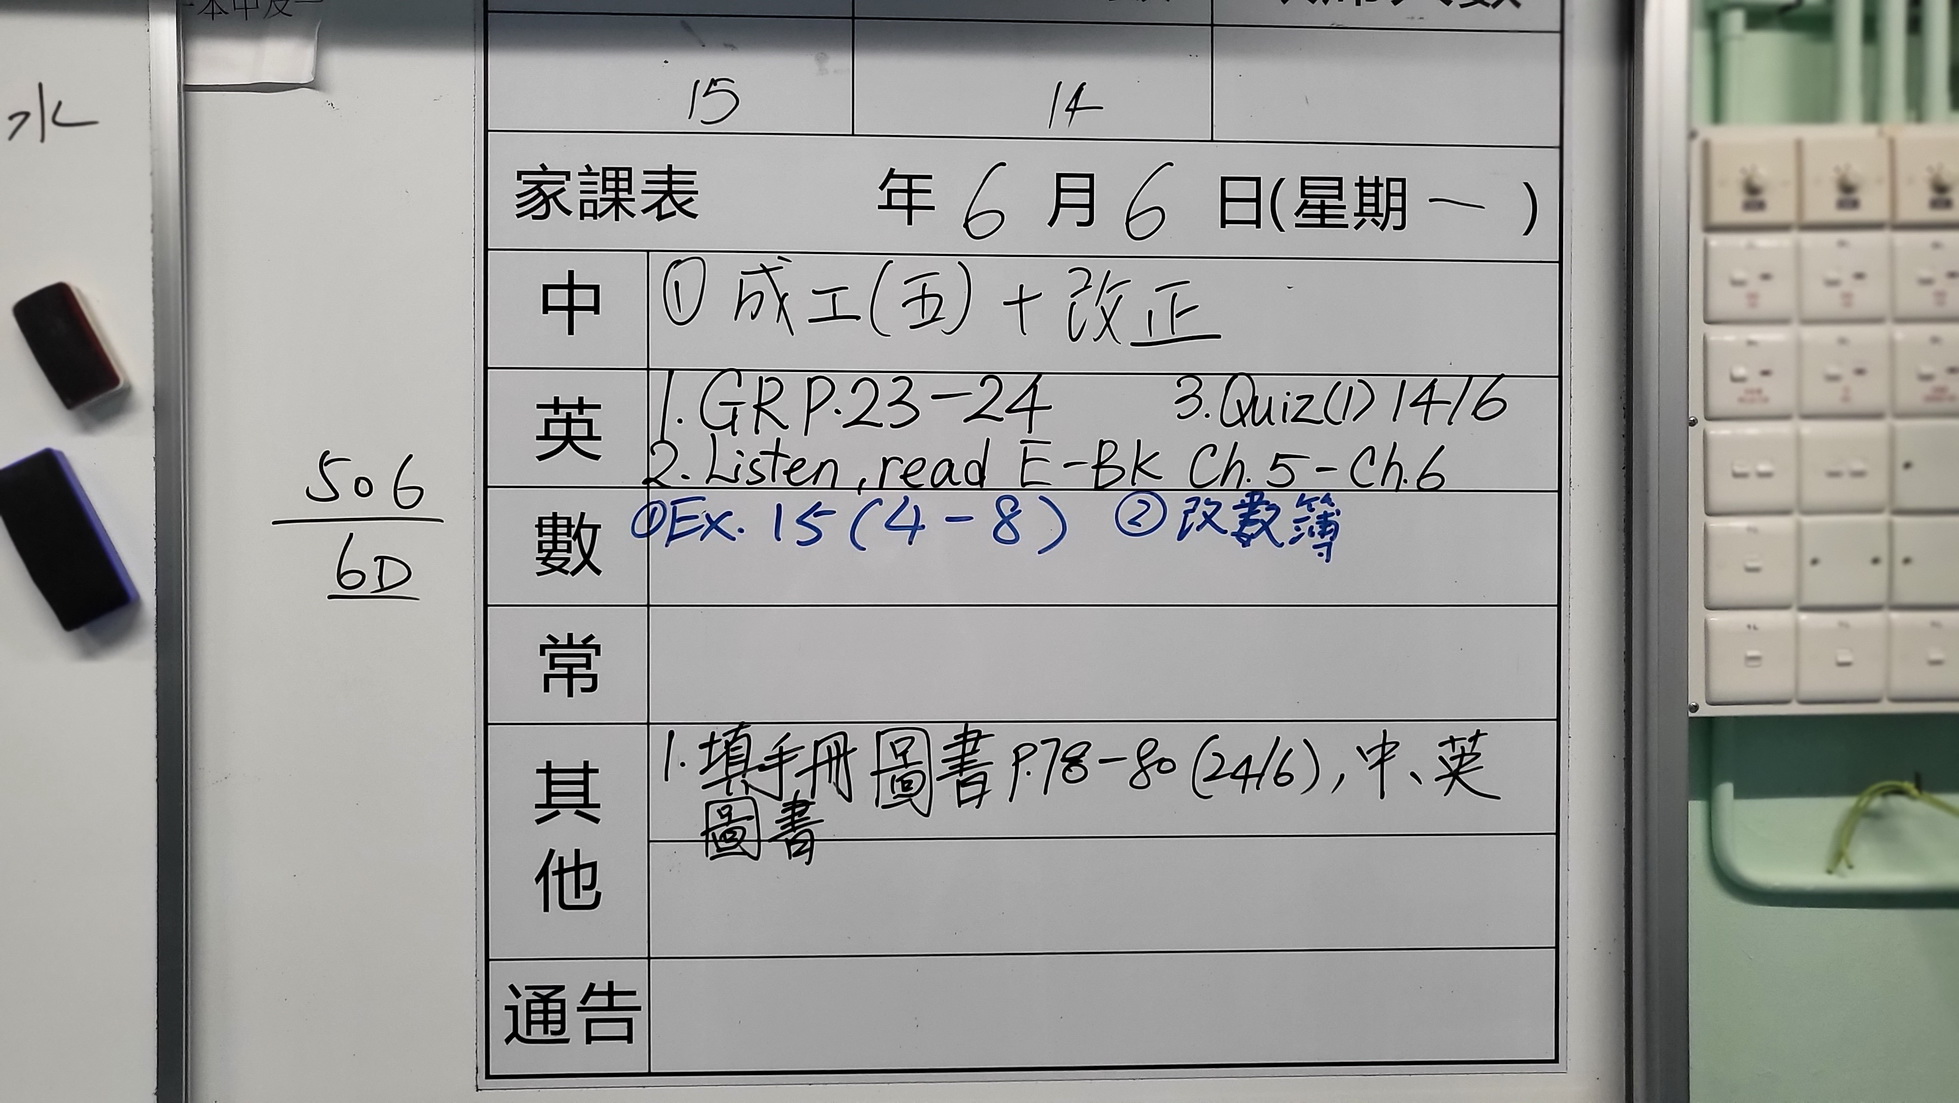 水
15 14
家課表 年 6 月 6 日(星期一)
中 ① 成工(五) + 改正
英 1. GR P.23-24 3. Quiz(1) 14/6
2. Listen, read E-BK Ch.5-Ch.6
數 ①Ex. 15 (4-8) ② 改數簿
常
其他 1. 填手冊 圖書 P.78-80 (24/6), 中、英
圖書
通告
506
6D